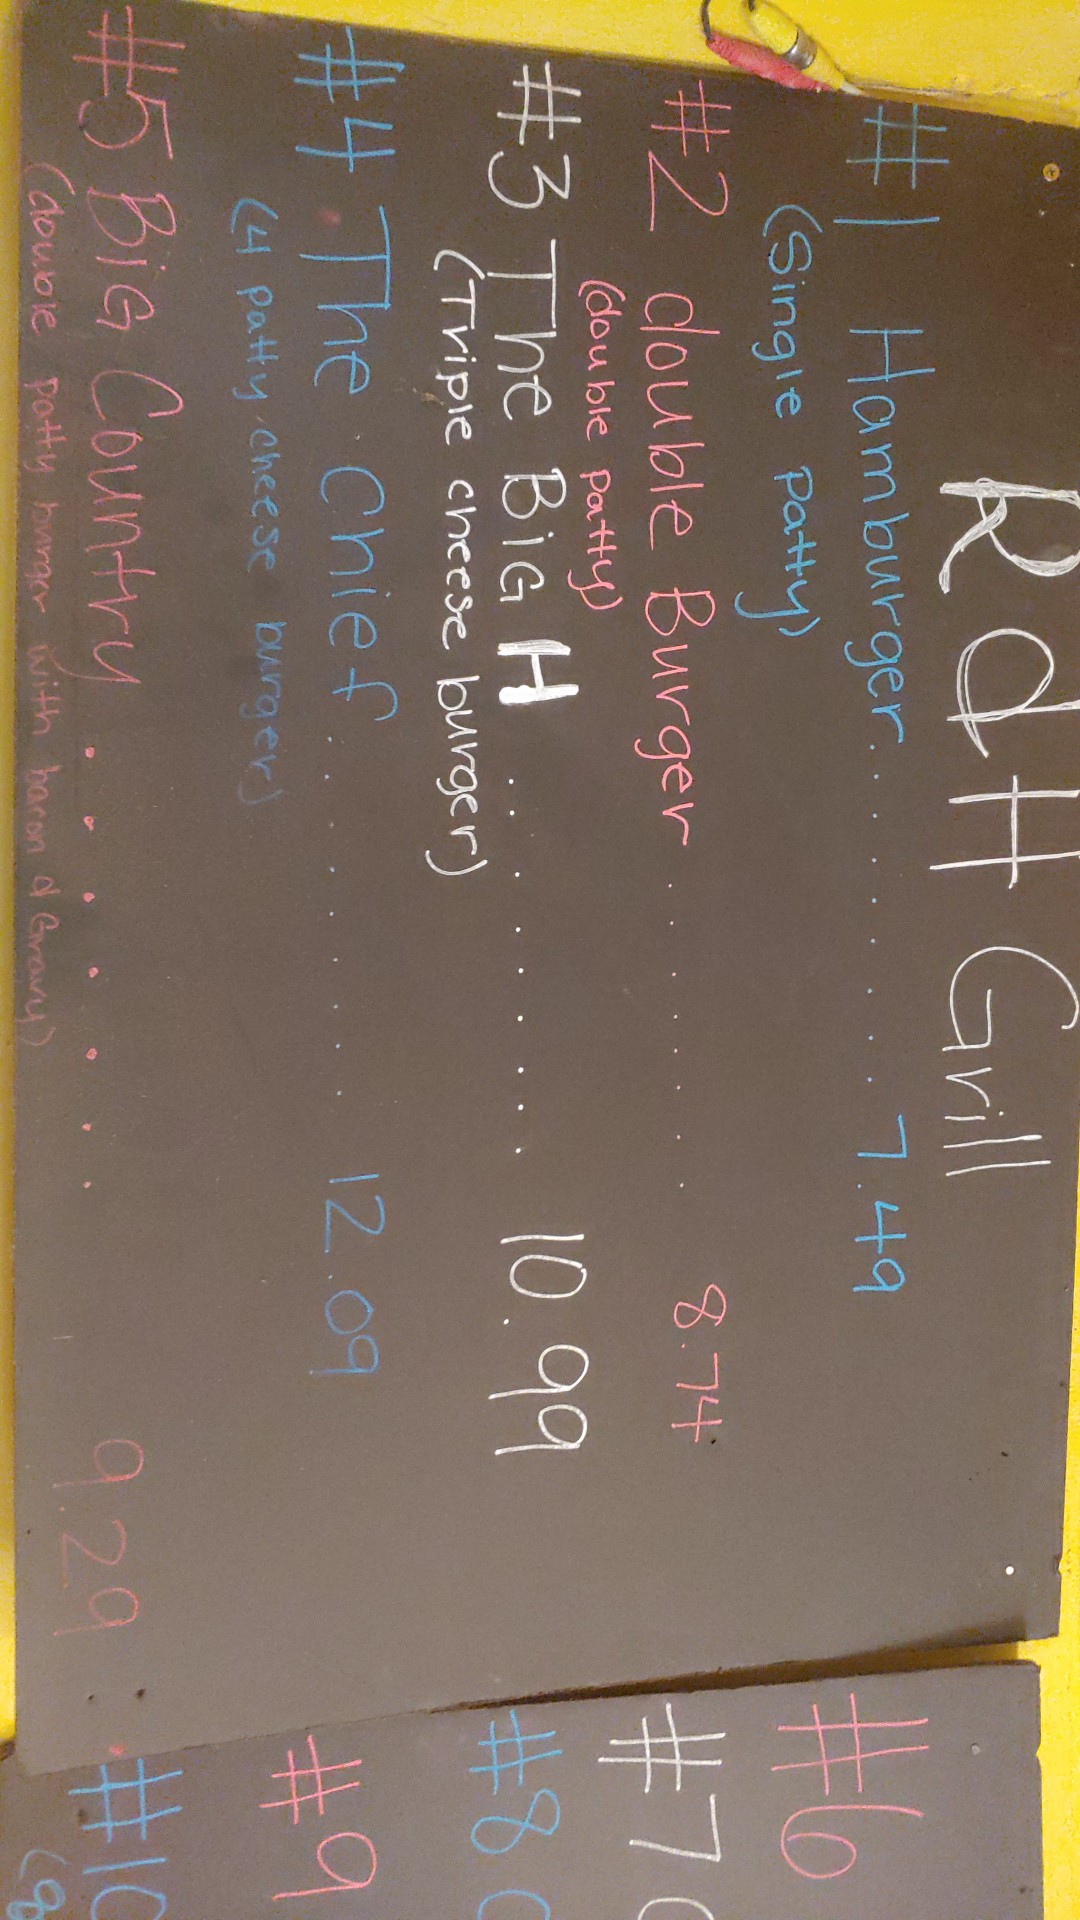 RdH Grill
#1 Hamburger......... 7.49
(Single patty)
#2 double Burger ...... 8.74
(double patty)
#3 The BiG H ......... 10.99
(Triple cheese burger)
#4 The Chief ......... 12.09
(4 patty cheese burger)
#5 BiG Country ....... 9.29
(double patty burger with bacon d Gravy)
#6
#7
#8
#9
#10
(8